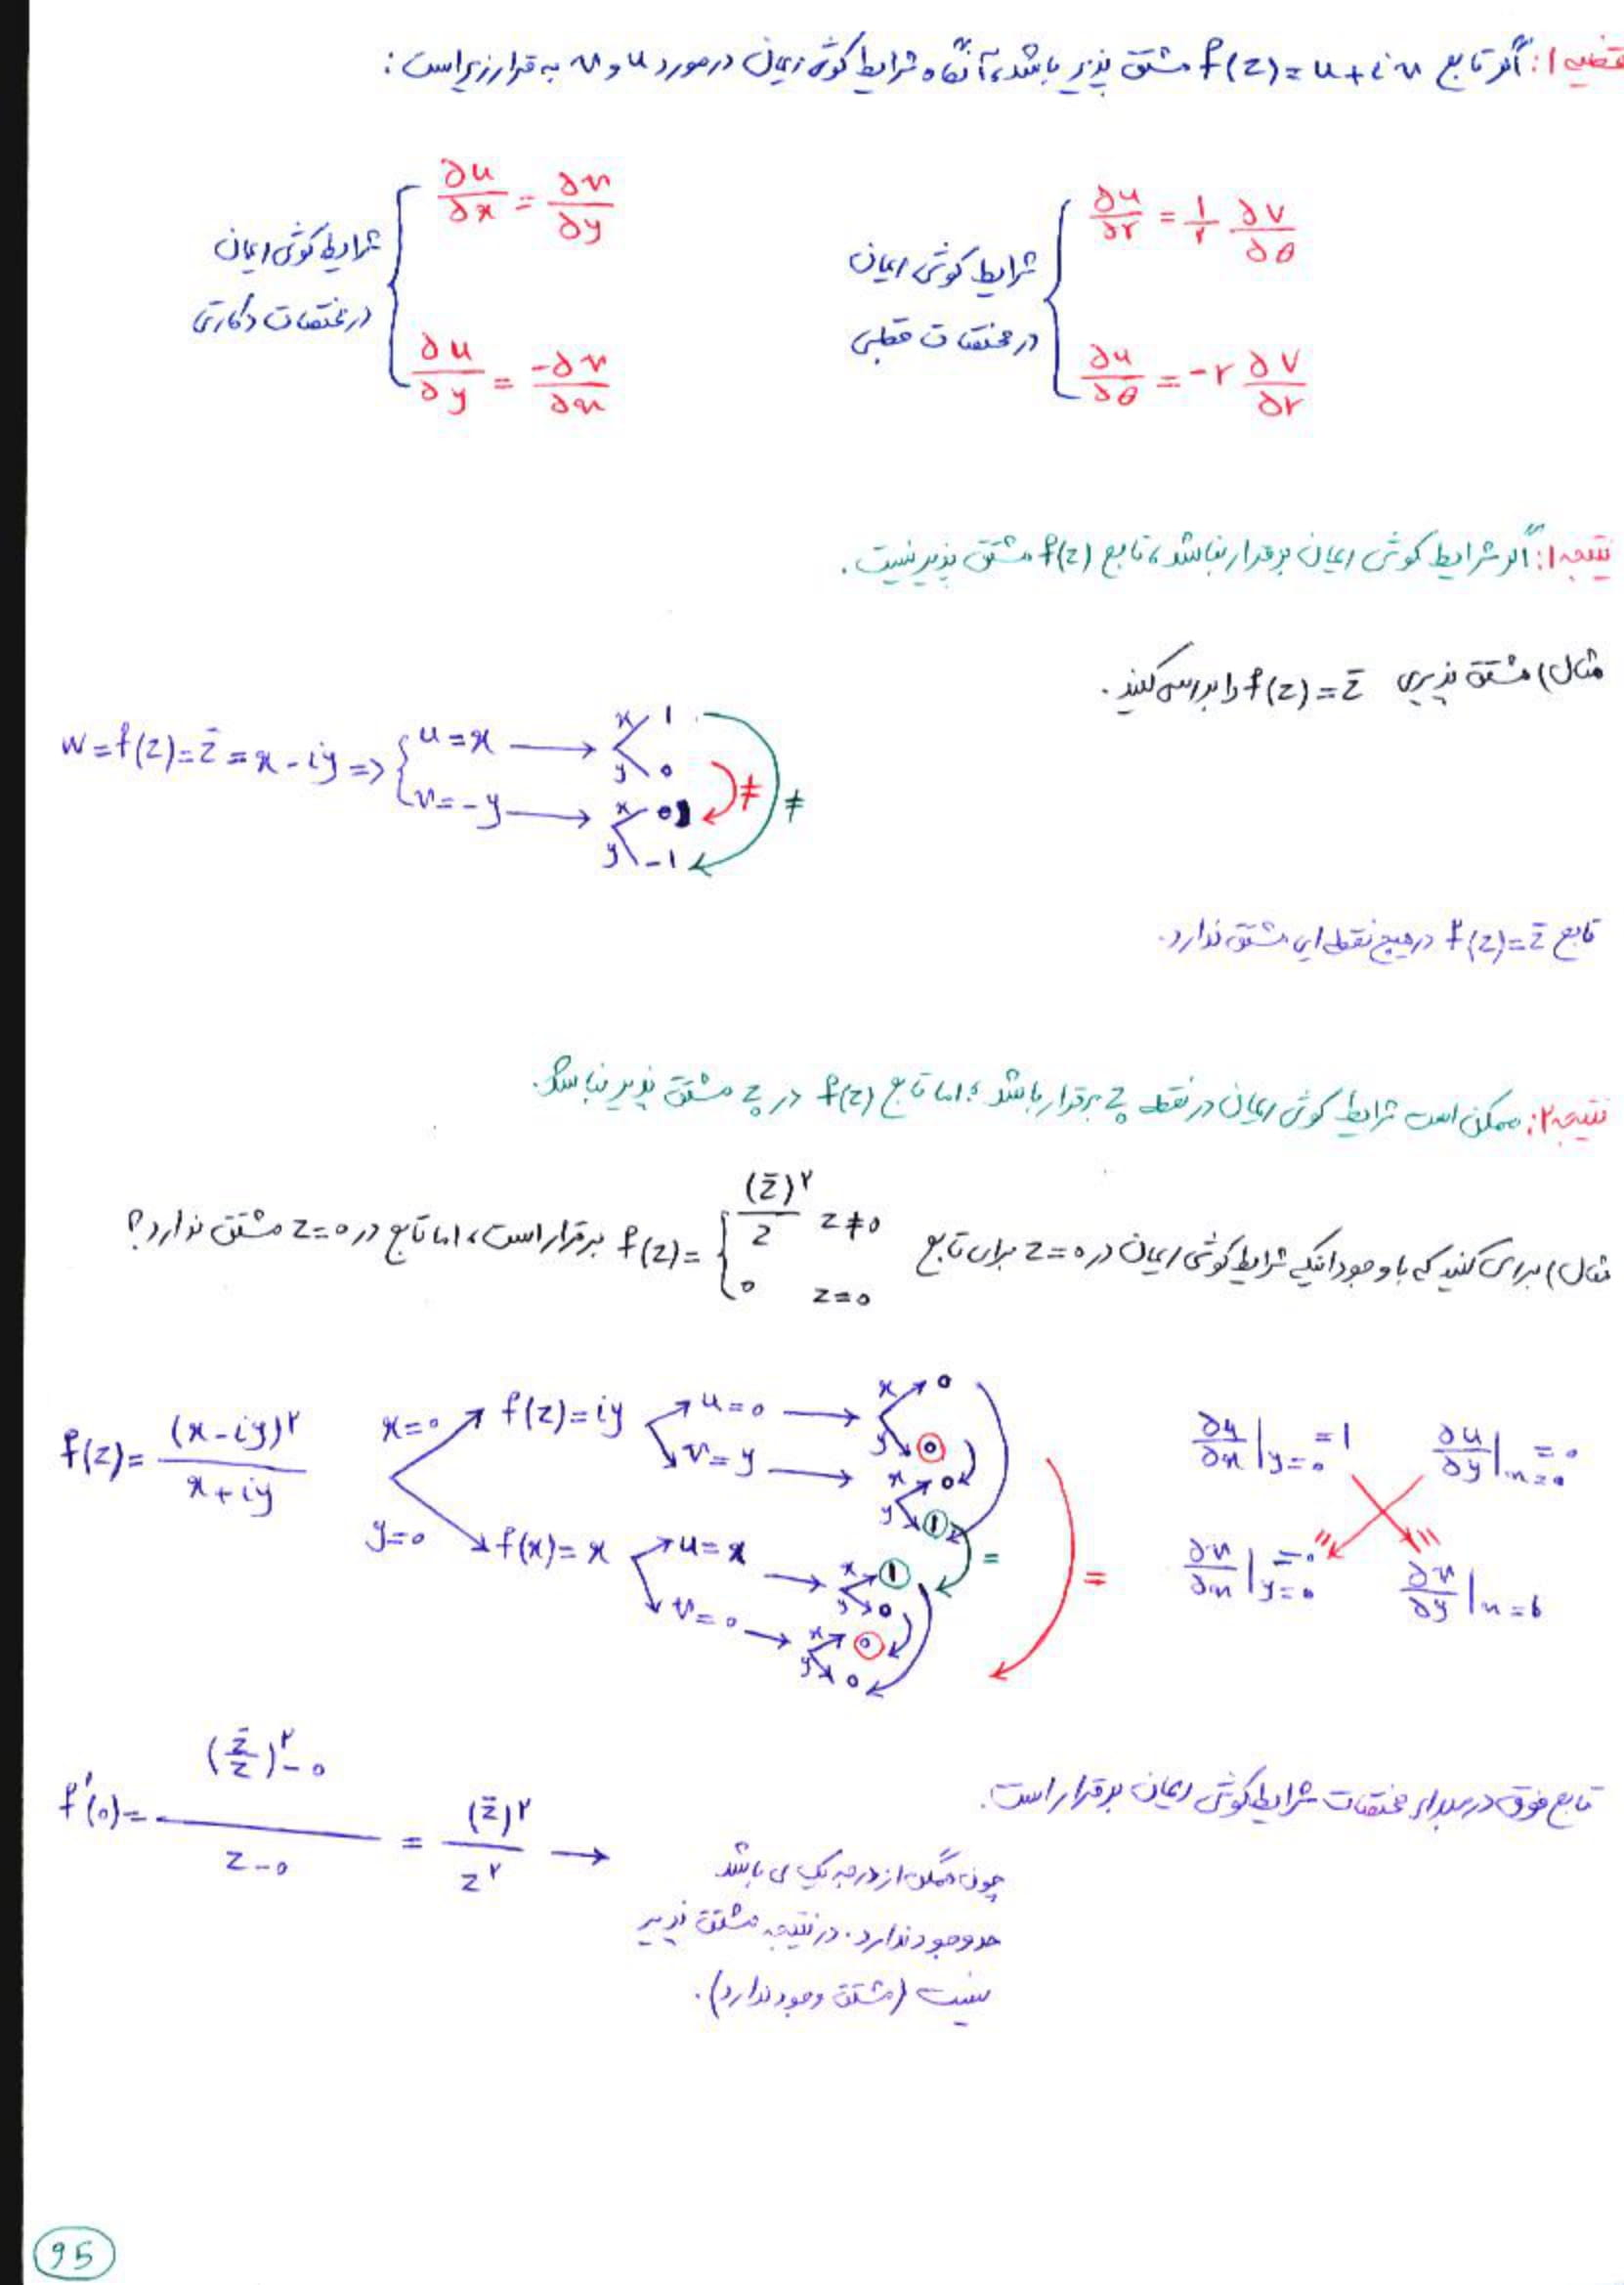 قضیه ۱: اگر تابع f(z) = u + iv مشتق پذیر باشد، آنگاه شرایط کوشی ریمان در مورد u و v به قرار زیر است:
شرایط کوشی ریمان در مختصات دکارتی { ∂u/∂x = ∂v/∂y
∂u/∂y = -∂v/∂x
شرایط کوشی ریمان در مختصات قطبی { ∂u/∂r = 1/r ∂v/∂θ
∂u/∂θ = -r ∂v/∂r
نتیجه ۱: اگر شرایط کوشی ریمان برقرار نباشد، تابع f(z) مشتق پذیر نیست.
مثال) مشتق پذیری f(z) = z̄ را بررسی کنید.
w = f(z) = z̄ = x - iy => { u = x → x 1
y 0
v = -y → x 0
y -1
≠ ≠
تابع f(z) = z̄ در هیچ نقطه ای مشتق ندارد.
نتیجه ۲: ممکن است شرایط کوشی ریمان در نقطه z برقرار باشد؛ اما تابع f(z) در z مشتق پذیر نباشد.
مثال) بررسی کنید که با وجود اینکه شرایط کوشی ریمان در z=0 برای تابع f(z) = { (z̄)۲/z z≠0
0 z=0 برقرار است، اما تابع در z=0 مشتق ندارد؟
f(z) = (x-iy)۲/(x+iy)
x=0 f(z) = iy u=0 → x 0
y 0
v=y → x 0
y 1
y=0 f(x) = x u=x → x 1
y 0
v=0 → x 0
y 0
= =
∂u/∂x |y=0 = 1 ∂u/∂y |x=0 = 0
∂v/∂x |y=0 = 0 ∂v/∂y |x=0
تابع فوق در مبدا مختصات شرایط کوشی ریمان برقرار است.
f'(0) = ((z̄/z)۲ - 0)/(z - 0) = (z̄)۲/z۲ →
چون همگن از درجه یک می باشد
حد وجود ندارد. در نتیجه مشتق پذیر
نیست (مشتق وجود ندارد).
95